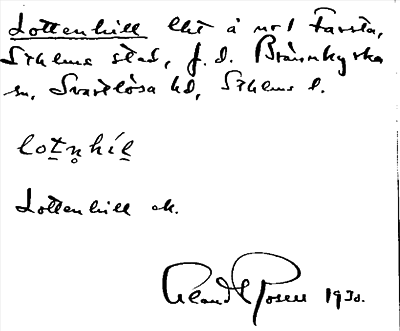 Lottenhill lht å nr 1 Farsta,
Sthlms stad, f. d. Brännkyrka
sn, Svartlösa hd, Sthlms l.
Lottenhill ok.
1930.